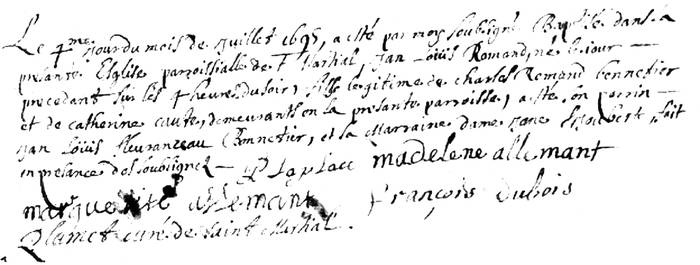 Le 4me jour du mois de juillet 1695, a esté par moy soubsigné Baptisé dans la
presante Eglise parroissialle de St Martial, Jan Loüis Romand, né le jour
precedant sur les 4 heures du soir, fils legitime de charles Romand bonnetier
et de catherine caute, demeurants en la presante parroisse, a esté son parrin
Jan Loüis fleuranceau Bonnetier, et la Marraine dame Joubert, fait
en presance des soubsignez madelene allemant
marguerite allemant françois dubois
curé de saint Martial.